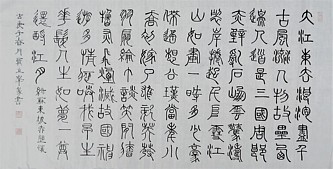 大江東去浪淘盡千
古風流人物故壘西
邊人道是三國周郎
赤壁亂石崩雲驚濤
裂岸捲起千堆雪江
山如畫一時多少豪
傑遙想公瑾當年小
喬初嫁了雄姿英發
羽扇綸巾談笑間檣
櫓灰飛煙滅故國神
遊多情應笑我早生
華髮人生如夢一尊
還酹江月 蘇東坡赤壁懷
古 庚子春月 書